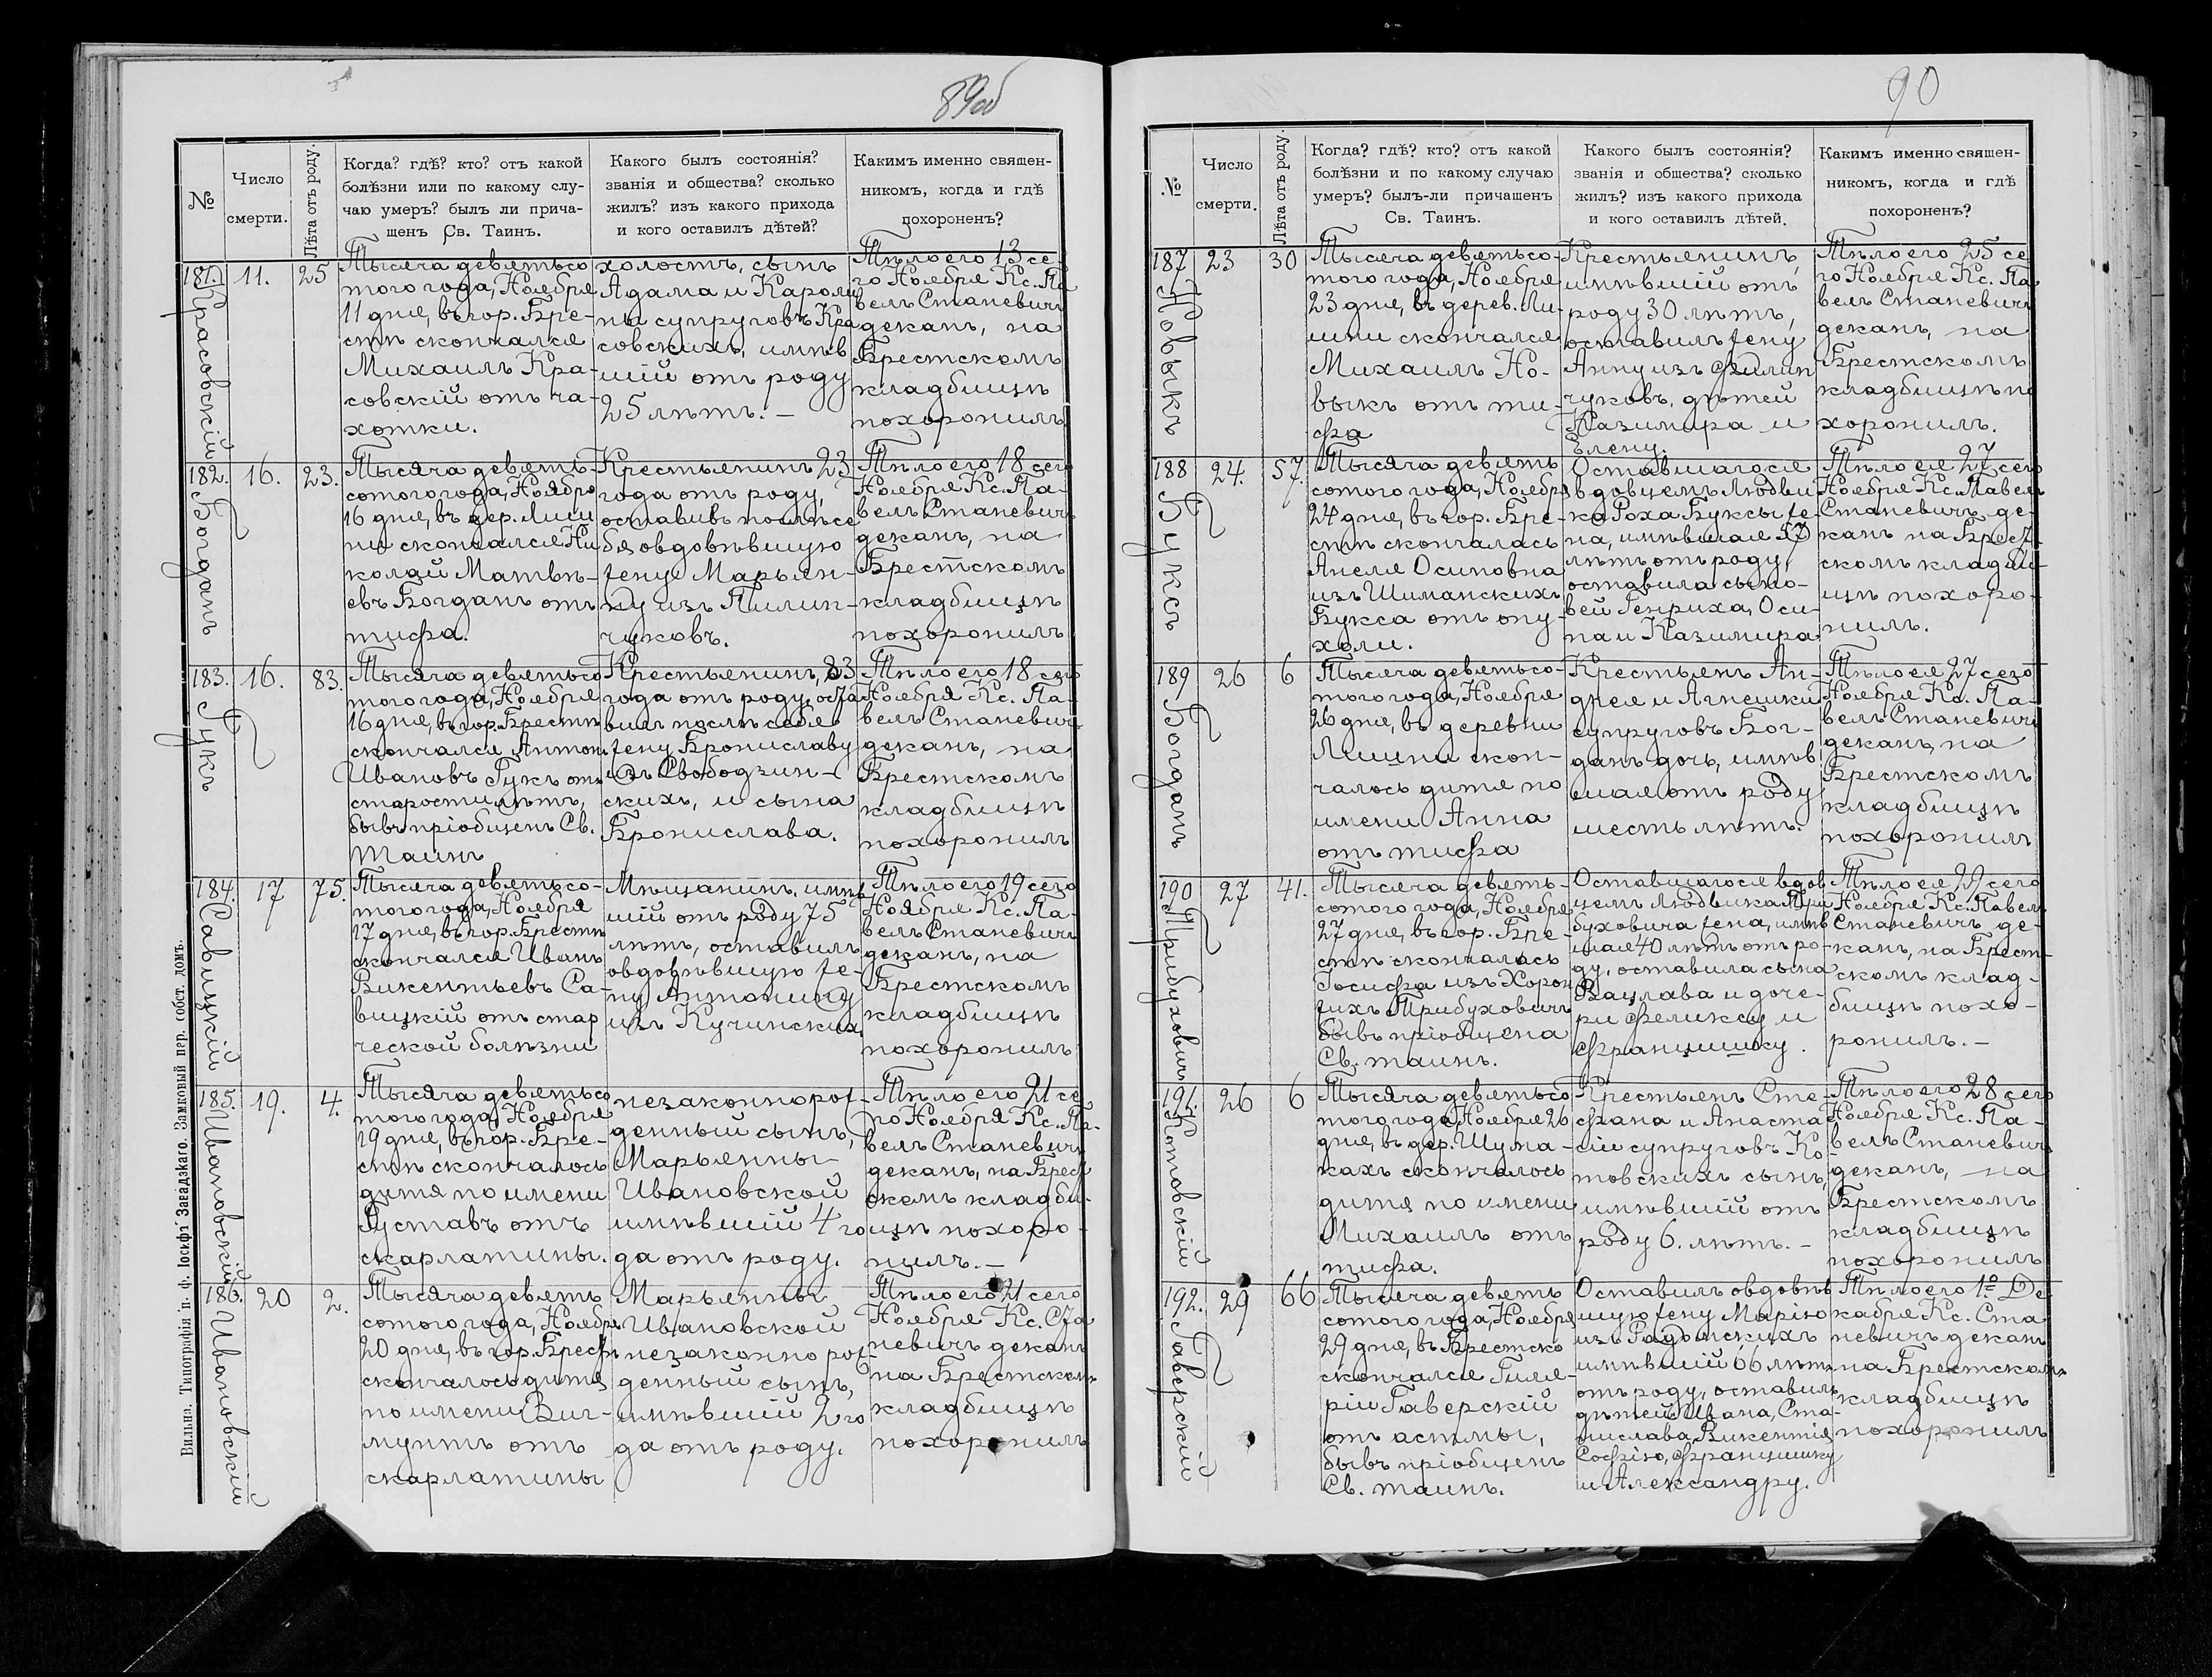 89об
№
Число
смерти.
Лѣта отъ роду.
Когда? гдѣ? кто? отъ какой
болѣзни или по какому слу-
чаю умеръ? былъ ли прича-
щенъ Св. Таинъ.
Какого былъ состоянія?
званія и общества? сколько
жилъ? изъ какого прихода
и кого оставилъ дѣтей?
Какимъ именно священ-
никомъ, когда и гдѣ
похороненъ?
181.
Красовскій
11.
25
Тысяча девятьсо
того года, Ноября
11 дня, въ гор. Бре-
стѣ скончался
Михаилъ Кра-
совскій отъ ча-
хотки.
холостъ, сынъ
Адама и Кароли
ны супруговъ Кра
совскихъ, имѣв
шій отъ роду
25 лѣтъ. —
Тѣло его 13 се-
го Ноября Кс. Па
велъ Станевичъ
деканъ, на
Брестскомъ
кладбищѣ
похоронилъ
182.
Богданъ
16.
23.
Тысяча девять-
сотого года, Ноября
16 дня, въ дер. Лищи
ни скончался Ни
колай Матвѣ-
евъ Богданъ отъ
тифа.
Крестьянинъ 23
года отъ роду,
оставивъ послѣ се
бя овдовѣвшую
жену Марьян-
ну изъ Пилип-
чуковъ.
Тѣло его 18 сего
Ноября Кс. Па-
велъ Станевичъ
деканъ, на
Брестскомъ
кладбищѣ
похоронилъ
183.
Гукъ
16.
83.
Тысяча девятьсо
того года, Ноября
16 дня, въ гор. Брестѣ
скончался Антонъ
Ивановъ Гукъ отъ
старости лѣтъ,
бывъ пріобщенъ Св.
Таинъ
Крестьянинъ, 83
года отъ роду, оста
вилъ послѣ себя
жену Брониславу
изъ Свободзин-
скихъ, и сына
Бронислава.
Тѣло его 18 сего
Ноября Кс. Па-
велъ Станевичъ
деканъ, на
Брестскомъ
кладбищѣ
похоронилъ
184.
Савицкій
17
75.
Тысяча девятьсо-
того года, Ноября
17 дня, въ гор. Брестѣ
скончался Иванъ
Викентьевъ Са-
вицкій отъ стар
ческой болѣзни
Мѣщанинъ, имѣв
шій отъ роду 75
лѣтъ, оставилъ
овдовѣвшую же-
ну Антонину
изъ Кучинскихъ
Тѣло его 19 сего
Ноября Кс. Па-
велъ Станевичъ
деканъ, на
Брестскомъ
кладбищѣ
похоронилъ
185.
Ивановскій
19.
4.
Тысяча девятьсо
того года, Ноября
19 дня, въ гор. Бре-
стѣ скончалось
дитя по имени
Густавъ отъ
скарлатины.
незаконнорож-
денный сынъ,
Марьянны
Ивановской
имѣвшій 4 го
да отъ роду.
Тѣло его 21 се
го Ноября Кс. Па-
велъ Станевичъ
деканъ, на Брест
скомъ кладби-
щѣ похоро-
нилъ. —
186.
Ивановскій
20
2.
Тысяча девять
сотого года, Ноября
20 дня, въ гор. Брестѣ
скончалось дитя
по имени Виг-
мунтъ отъ
скарлатины
Марьянны
Ивановской
незаконно рож
денный сынъ,
имѣвшій 2 го
да отъ роду.
Тѣло его 21 сего
Ноября Кс. Ста
невичъ деканъ
на Брестскомъ
кладбищѣ
похоронилъ
Вильна. Типографія п. ф. Іосифъ Завадзкаго. Замковый пер. собст. домъ.
90
№
Число
смерти.
Лѣта отъ роду.
Когда? гдѣ? кто? отъ какой
болѣзни и по какому случаю
умеръ? былъ-ли причащенъ
Св. Таинъ.
Какого былъ состоянія?
званія и общества? сколько
жилъ? изъ какого прихода
и кого оставилъ дѣтей.
Какимъ именно священ-
никомъ, когда и гдѣ
похороненъ?
187
Новыкъ
23
30
Тысяча девятьсо-
того года, Ноября
23 дня, въ дерев. Ли-
щни скончался
Михаилъ Но-
выкъ отъ ти-
фа
Крестьянинъ,
имѣвшій отъ
роду 30 лѣтъ,
оставилъ жену
Анну изъ Филип
чуковъ, дѣтей
Казимира и
Елену.
Тѣло его 25 се
го Ноября Кс. Па
велъ Станевичъ
деканъ, на
Брестскомъ
кладбищѣ по
хоронилъ.
188
Буксъ
24.
57.
Тысяча девять
сотого года, Ноября
24 дня, въ гор. Бре-
стѣ скончалась
Анеля Осиповна
изъ Шиманскихъ
Букса отъ опу-
холи.
Оставшагося
вдовцемъ Людви
ка Роха Буксы же-
на, имѣвшая 57
лѣтъ отъ роду,
оставила сыно-
вей Генриха, Оси-
па и Казимира
Тѣло ея 27 сего
Ноября Кс. Павелъ
Станевичъ де-
канъ на Брест-
скомъ кладби-
щѣ похоро-
нилъ.
189
Богданъ
26
6
Тысяча девятьсо-
того года, Ноября
26 дня, въ деревни
Лищни скон-
чалось дитя по
имени Анна
отъ тифа
Крестьянъ Ан-
дрея и Агнешки
супруговъ Бог-
данъ дочь, имѣв
шая отъ роду
шесть лѣтъ.
Тѣло ея 27 сего
Ноября Кс. Па-
велъ Станевичъ
деканъ, на
Брестскомъ
кладбищѣ
похоронилъ
190
Прибуховичъ
27
41.
Тысяча девять-
сотого года, Ноября
27 дня, въ гор. Бре-
стѣ скончалась
Іосифа изъ Хорон
жихъ Прибуховичъ
бывъ пріобщена
Св. таинъ.
Оставшагося вдов
цемъ Людвика При
буховича жена, имѣв
шая 40 лѣтъ отъ ро-
ду, оставила сына
Вацлава и доче-
ри Феликсу и
Францишку.
Тѣло ея 29 сего
Ноября Кс. Павелъ
Станевичъ де-
канъ, на Брест-
скомъ клад-
бищѣ похо-
ронилъ. —
191.
Котовскій
26
6
Тысяча девятьсо
того года, Ноября 26
дня, въ дер. Шума-
кахъ скончалось
дитя по имени
Михаилъ отъ
тифа.
Крестьянъ Сте-
фана и Анаста
сіи супруговъ Ко
товскихъ сынъ,
имѣвшій отъ
роду 6. лѣтъ. —
Тѣло его 28 сего
Ноября Кс. Па-
велъ Станевичъ
деканъ, на
Брестскомъ
кладбищѣ
похоронилъ
192.
Гаверскій
29
66
Тысяча девять
сотого года, Ноября
29 дня, въ Брестско
скончался Гиля-
рій Гаверскій
отъ астмы,
бывъ пріобщенъ
Св. таинъ.
Оставилъ овдовѣв
шую жену Марію
изъ Радомскихъ
имѣвшій 66 лѣтъ
отъ роду, оставилъ
дѣтей Ивана, Ста-
нислава, Викентія,
Софію, Францишку
и Александру.
Тѣло его 1º Де
кабря Кс. Ста
невичъ деканъ
на Брестскомъ
кладбищѣ
похоронилъ